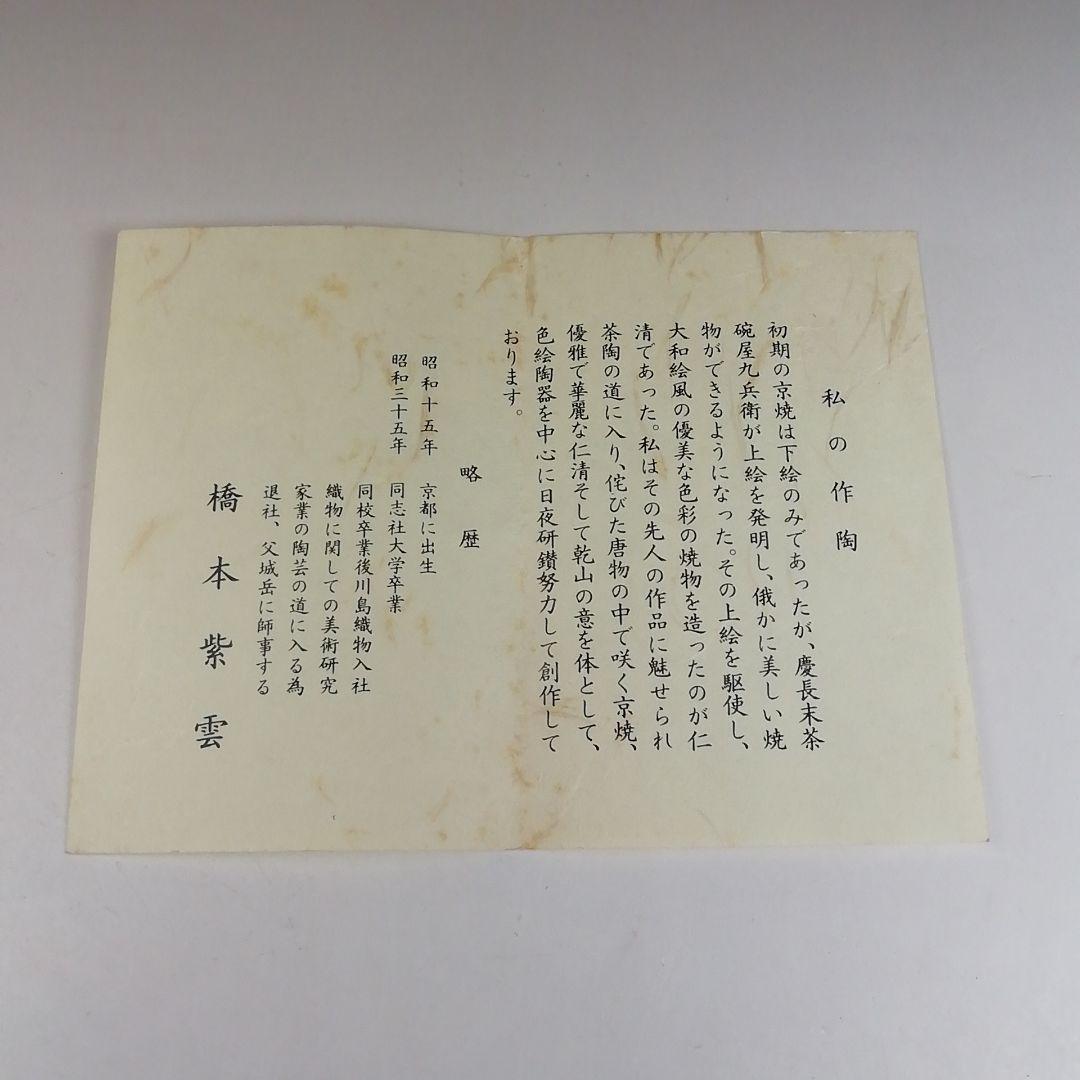 私の作陶
初期の京焼は下絵のみであったが、慶長末茶
碗屋九兵衛が上絵を発明し、俄かに美しい焼
物ができるようになった。その上絵を駆使し、
大和絵風の優美な色彩の焼物を造ったのが仁
清であった。私はその先人の作品に魅せられ
茶陶の道に入り、侘びた唐物の中で咲く京焼、
優雅で華麗な仁清そして乾山の意を体として、
色絵陶器を中心に日夜研鑚努力して創作して
おります。
略歴
昭和十五年 京都に出生
昭和三十五年 同志社大学卒業
同校卒業後川島織物入社
織物に関しての美術研究
家業の陶芸の道に入る為
退社、父城岳に師事する
橋本紫雲